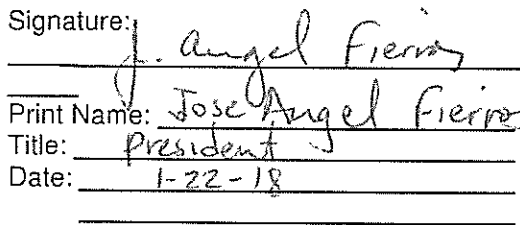 Signature: J. Angel Fierros
Print Name: Jose Angel Fierro
Title: President
Date: 1-22-18